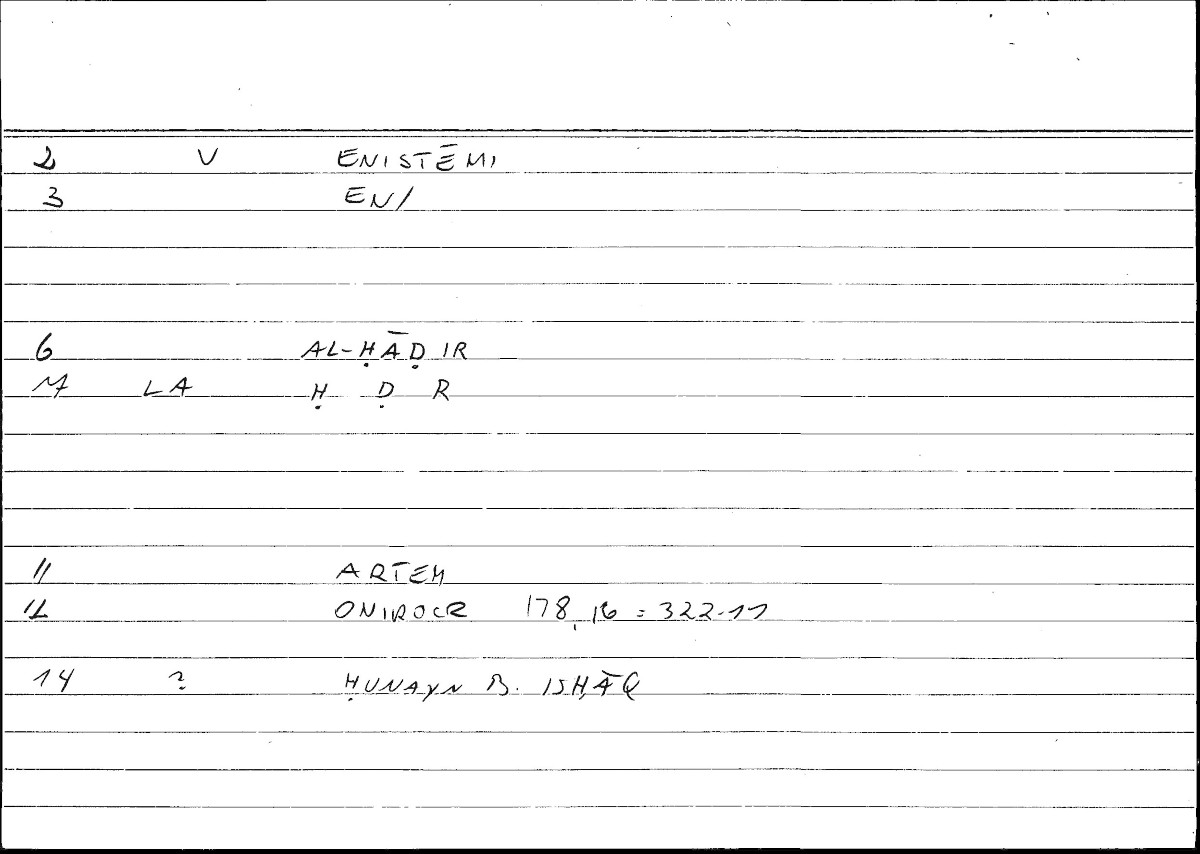 2 V ENISTĒMI
3 EN/
6 AL-ḤĀḌIR
7 LA Ḥ Ḍ R
11 ARTEM
12 ONIROCR 178,16 = 322.11
14 ? ḤUNAYN B. ISḤĀQ